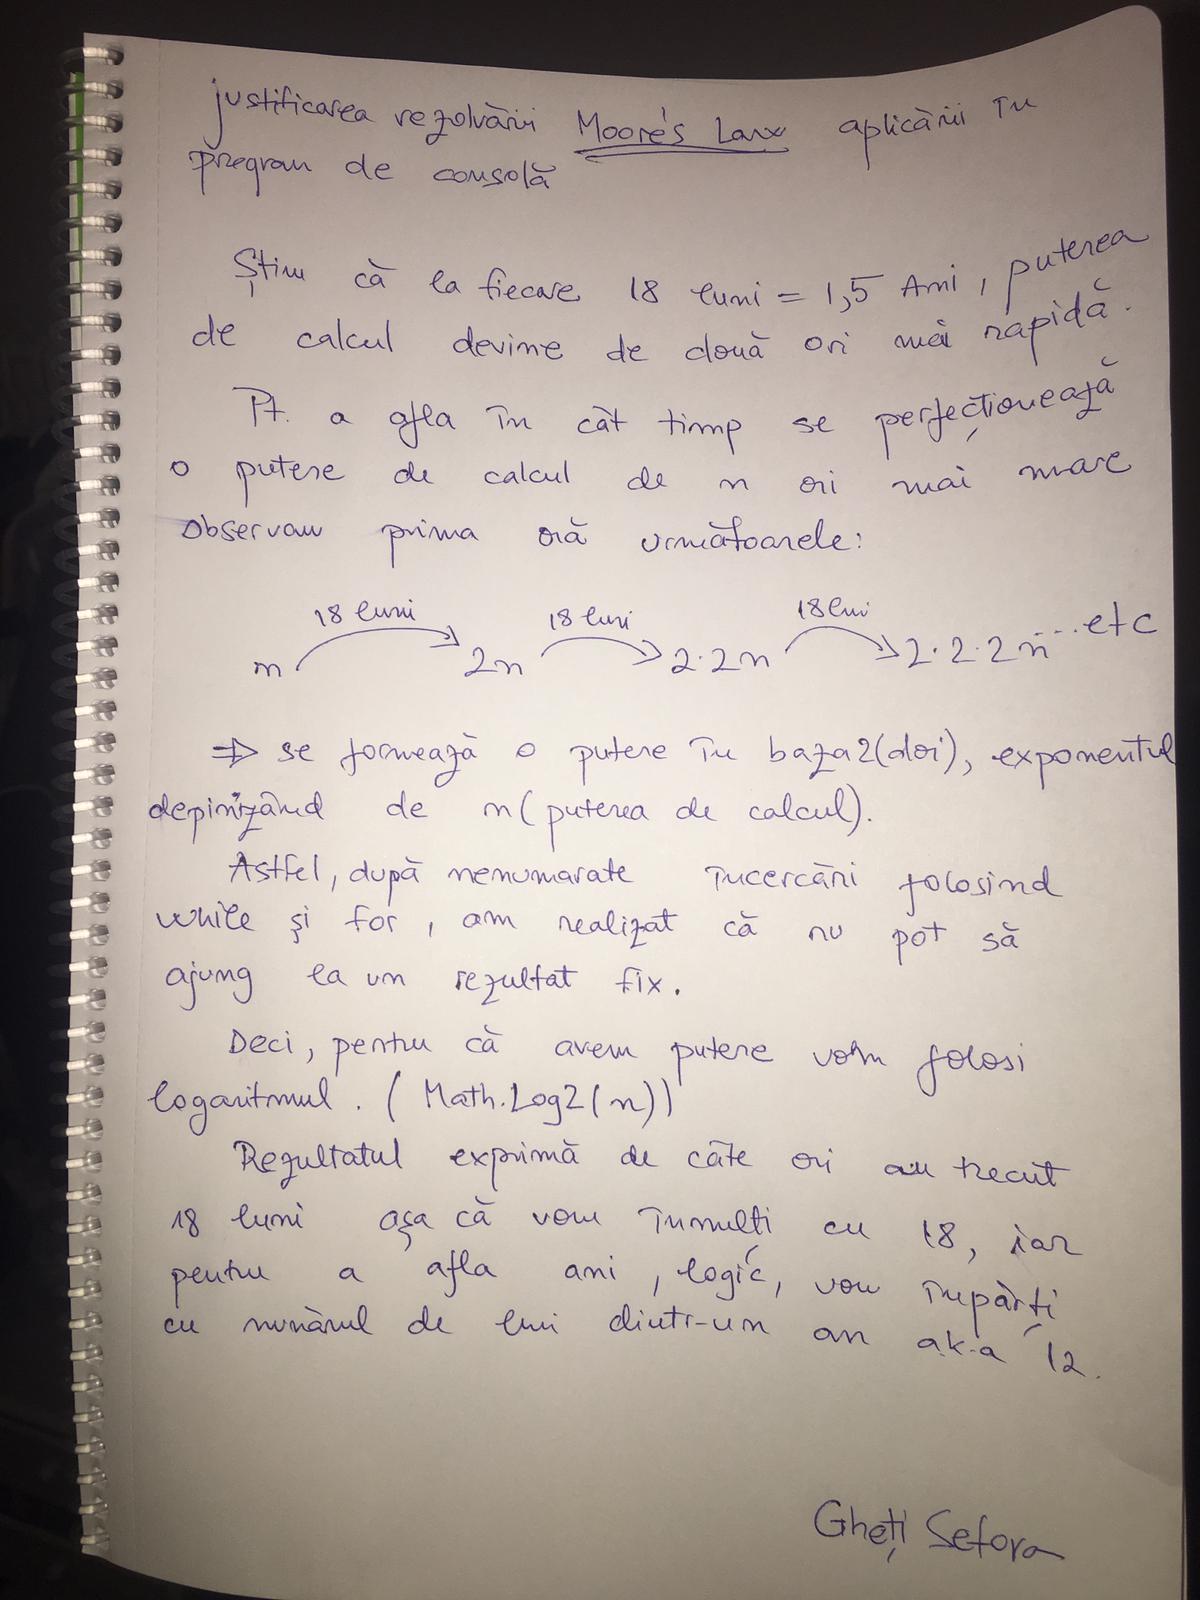 justificarea rezolvării Moore's Law aplicării în
program de consolă
Știm că la fiecare 18 luni = 1,5 Ani, puterea
de calcul devine de două ori mai rapidă.
Pt. a afla în cât timp se perfecționează
o putere de calcul de n ori mai mare
observam prima oră următoarele:
18 luni 18 luni 18 luni
n 2n 2·2n 2·2·2n ...etc
⇒ se formează o putere în baza2(doi), exponentul
depinzând de n (puterea de calcul).
Astfel, după nenumarate încercări folosind
while și for, am realizat că nu pot să
ajung la un rezultat fix.
Deci, pentru că avem putere vom folosi
logaritmul. (Math.Log2(n))
Rezultatul exprimă de câte ori au trecut
18 luni așa că vom înmulți cu 18, iar
pentru a afla ani, logic, vom împărți
cu numărul de luni dintr-un an a.k.a 12.
Gheți Sefora